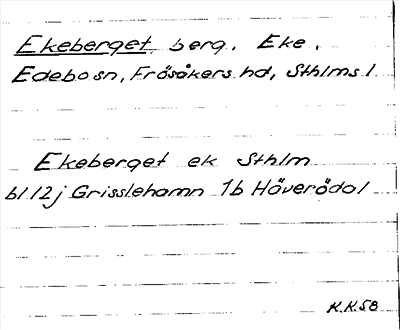 Ekeberget, berg, Eke,
Edebo sn, Frösåkers hd, Sthlms l
Ekeberget ek Sthlm
bl 12j Grisslehamn 1b Häverödal
K.K.58